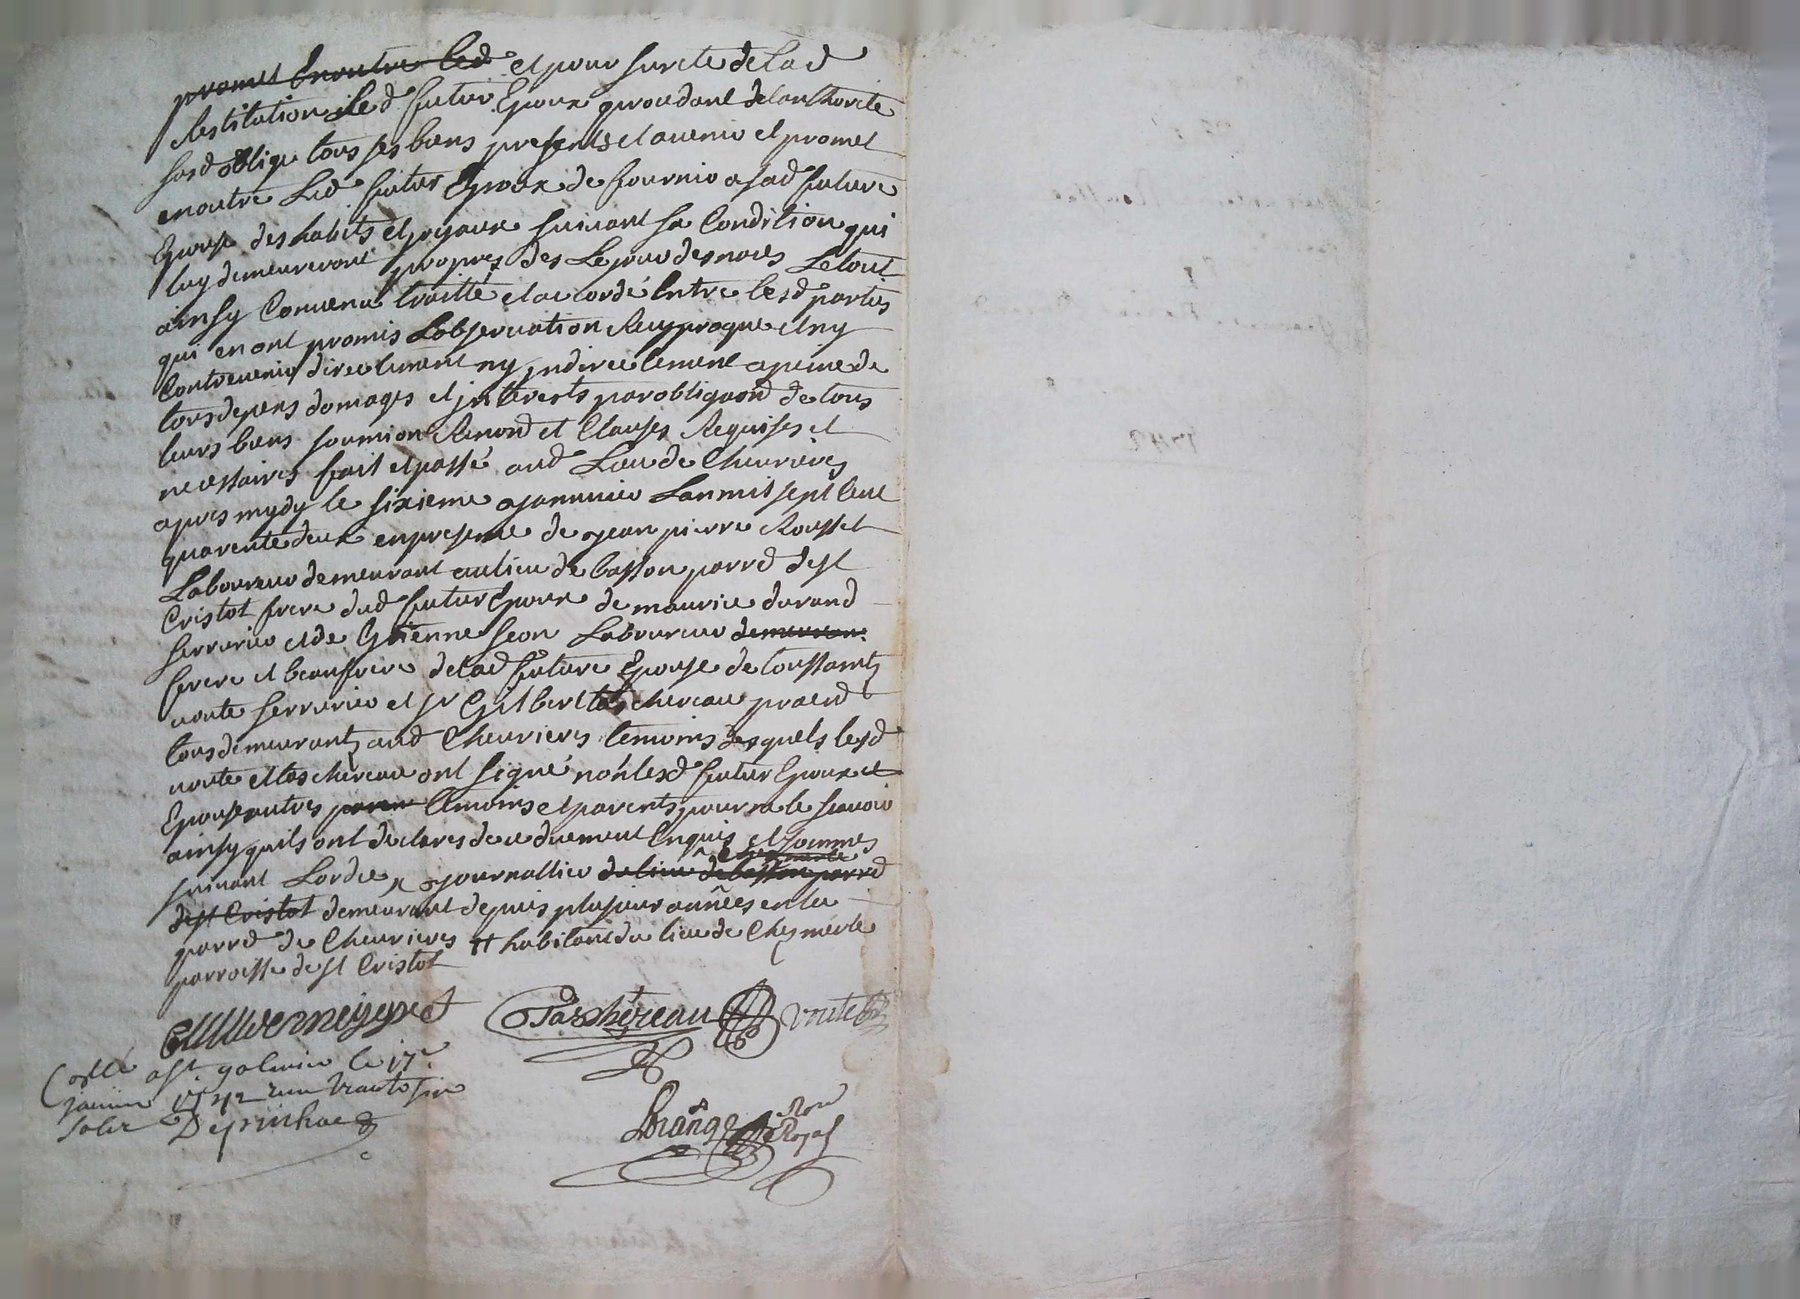 promet Enoutre led et pour surete delad
Restitution led futur Epoux procedant delauthorite
susd oblige tous ses biens presents et avenir et promet
enoutre Led futur Epoux de fournir a sad future
Epouse des habits et joyaux suivant sa Condition qui
luy demeureront propres des Le jour des noces Le tout
ainsy Convenu traitté et accordé Entre lesd parties
qui en ont promis Lobservation Reciproque et ny
Contrevenir directement ny indirectement a peine de
tous depens domages et jnterests par obligaon de tous
leurs biens soumion Renond et Clauses Requises et
necessaires fait et passé aud Lieu de Chevrieres
apres mydy le sixieme janvier Lan mil sept Cent
quarente deux en presence de jean pierre Rousset
Laboureur demeurant au lieu de basson parrd de st
Cristot frere dud futur Epoux de maurice durand
serrurier et de Etienne jeon Laboureur demeurant
frere et beaufrere delad future Epouse de toussaint
voute serrurier et sr Gilbert taschereau praend
tous demeurants aud Chevrieres temoins desquels lesd
voute et taschereau ont signé non lesd futur Epoux et
Epouse autres parens temoins et parents pour ne le scavoir
ainsy quils ont declarés de ce duement Enquis et sommes
suivant Lordce journallier du lieu de basson parrd
de st Cristot demeurant depuis plusieurs années en la
parrd de Chevrieres # habitant du lieu de Cheymerle
parroisse de st Cristot
Taschereau voute
Collé a st galmier le 17e
janvier 1742 Reçu trante six
sols Depinhac
Royal
1742